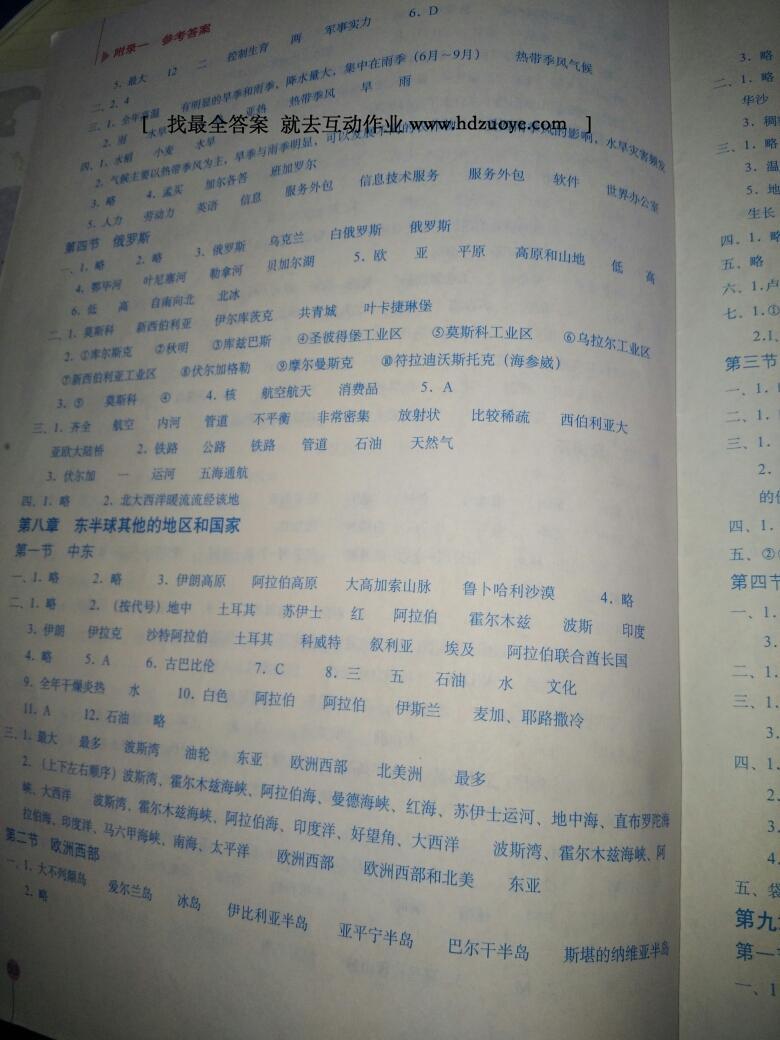 附录一 参考答案
5. 最大 12 二 控制生育 两 军事实力 6. D
二、2. 4
三、1. 全年高温 有明显的旱季和雨季，降水量大，集中在雨季（6月～9月） 热带季风气候
2. 雨 水旱 亚热 热带季风 旱 雨
[ 找最全答案 就去互动作业 www.hdzuoye.com ]
四、1. 水稻 小麦 水旱
2. 气候主要以热带季风为主，旱季与雨季明显，可以发展 的影响，水旱灾害频发
3. 略 4. 孟买 加尔各答 班加罗尔
5. 人力 劳动力 英语 信息 服务外包 信息技术服务 服务外包 软件 世界办公室
第四节 俄罗斯
一、1. 略 2. 略 3. 俄罗斯 乌克兰 白俄罗斯 俄罗斯
4. 鄂毕河 叶尼塞河 勒拿河 贝加尔湖 5. 欧 亚 平原 高原和山地 低 高
6. 低 高 自南向北 北冰
二、1. 莫斯科 新西伯利亚 伊尔库茨克 共青城 叶卡捷琳堡
2. ①库尔斯克 ②秋明 ③库兹巴斯 ④圣彼得堡工业区 ⑤莫斯科工业区 ⑥乌拉尔工业区
⑦新西伯利亚工业区 ⑧伏尔加格勒 ⑨摩尔曼斯克 ⑩符拉迪沃斯托克（海参崴）
3. ⑤ 莫斯科 ④ 4. 核 航空航天 消费品 5. A
三、1. 齐全 航空 内河 管道 不平衡 非常密集 放射状 比较稀疏 西伯利亚大
亚欧大陆桥 2. 铁路 公路 铁路 管道 石油 天然气
3. 伏尔加 一 运河 五海通航
四、1. 略 2. 北大西洋暖流流经该地
第八章 东半球其他的地区和国家
第一节 中东
一、1. 略 2. 略 3. 伊朗高原 阿拉伯高原 大高加索山脉 鲁卜哈利沙漠 4. 略
二、1. 略 2.（按代号）地中 土耳其 苏伊士 红 阿拉伯 霍尔木兹 波斯 印度
3. 伊朗 伊拉克 沙特阿拉伯 土耳其 科威特 叙利亚 埃及 阿拉伯联合酋长国
4. 略 5. A 6. 古巴比伦 7. C 8. 三 五 石油 水 文化
9. 全年干燥炎热 水 10. 白色 阿拉伯 阿拉伯 伊斯兰 麦加、耶路撒冷
11. A 12. 石油 略
三、1. 最大 最多 波斯湾 油轮 东亚 欧洲西部 北美洲 最多
2.（上下左右顺序）波斯湾、霍尔木兹海峡、阿拉伯海、曼德海峡、红海、苏伊士运河、地中海、直布罗陀海
峡、大西洋 波斯湾、霍尔木兹海峡、阿拉伯海、印度洋、好望角、大西洋 波斯湾、霍尔木兹海峡、阿
拉伯海、印度洋、马六甲海峡、南海、太平洋 欧洲西部 欧洲西部和北美 东亚
第二节 欧洲西部
一、1. 大不列颠岛 爱尔兰岛 冰岛 伊比利亚半岛 亚平宁半岛 巴尔干半岛 斯堪的纳维亚半岛
2. 略
3. 略
二、1. 略
华沙
3. 稠
三、1. 略
3. 温
5. 地
生长
四、1. 略
五、略
六、1. 卢
七、1. ①
2. 1.
第三节
一、1.
二、1.
三、1.
2.
的
四、1.
五、②
第四节
一、1.
3.
二、1.
三、1.
3.
四、1.
2.
3.
4.
五、袋
第九
第一节
一、1